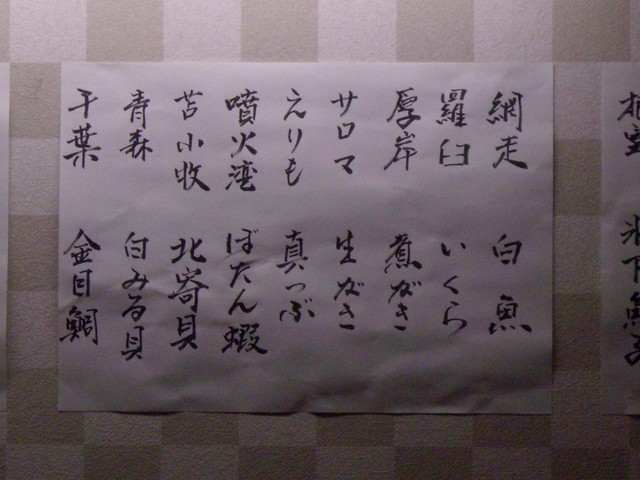 網走 白魚
羅臼 いくら
厚岸 煮がき
サロマ 生がき
えりも 真つぶ
噴火湾 ぼたん蝦
苫小牧 北寄貝
青森 白みる貝
千葉 金目鯛